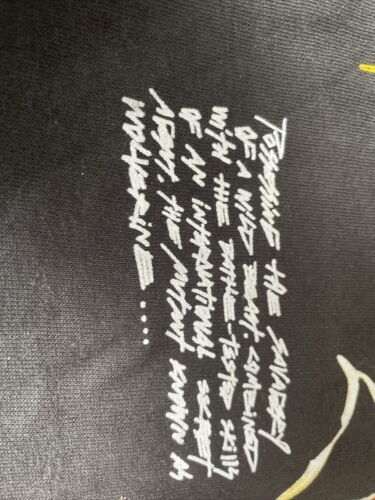 POSSESSING THE SAVAGERY
OF A WILD BEAST COMBINED
WITH THE BATTLE-TESTED SKILLS
OF AN INTERNATIONAL SECRET
AGENT: THE MUTANT KNOWN AS
WOLVERINE.....